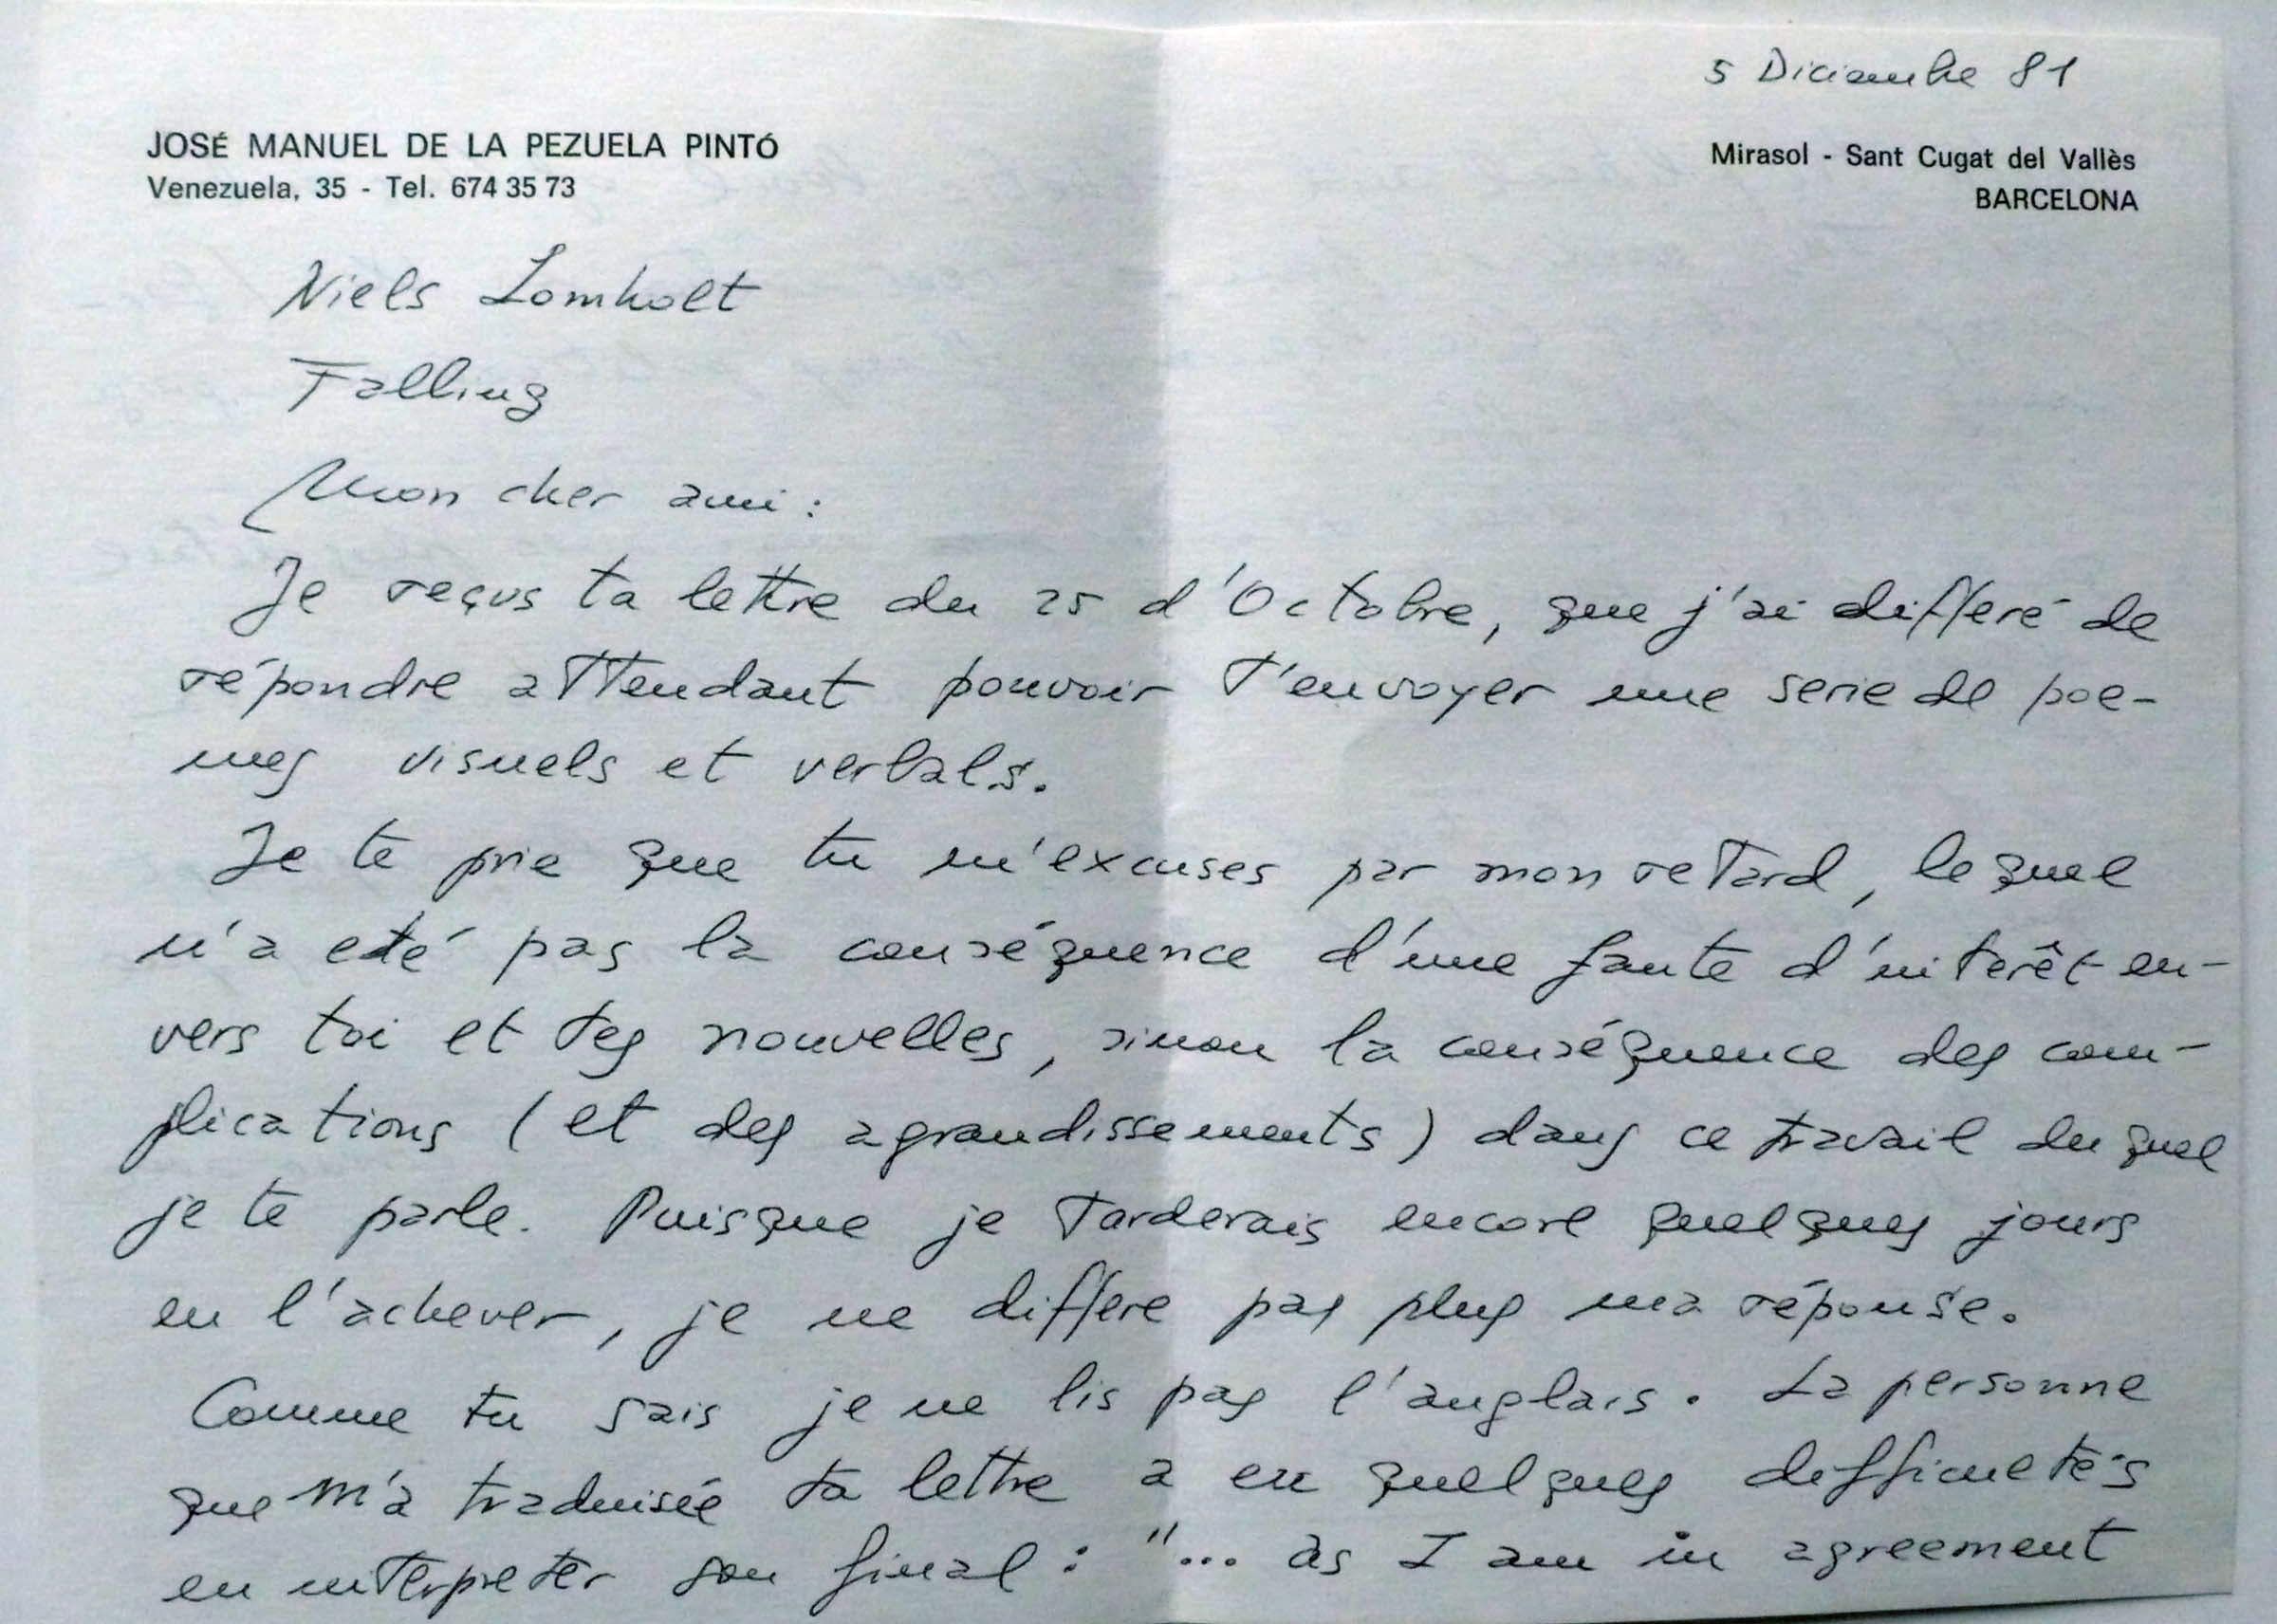 5 Diciembre 81
JOSÉ MANUEL DE LA PEZUELA PINTÓ
Venezuela, 35 - Tel. 674 35 73
Mirasol - Sant Cugat del Vallès
BARCELONA
Niels Lomholt
Falling
Mon cher ami:
Je reçus ta lettre du 25 d'Octobre, que j'ai differé de
répondre attendant pouvoir t'envoyer une serie de poe-
mes visuels et verbals.
Je te prie que tu m'excuses par mon retard, lequel
n'a eté pas la conséquence d'une faute d'interêt en-
vers toi et tes nouvelles, sinon la conséquence des com-
plications (et des agrandissements) dans ce travail du quel
je te parle. Puisque je tarderais encore quelques jours
en l'achever, je ne differe pas plus ma réponse.
Comme tu sais je ne lis pas l'anglais. La personne
que m'a traduisée ta lettre a eu quelques difficultés
en interpreter son final: "... as I am in agreement